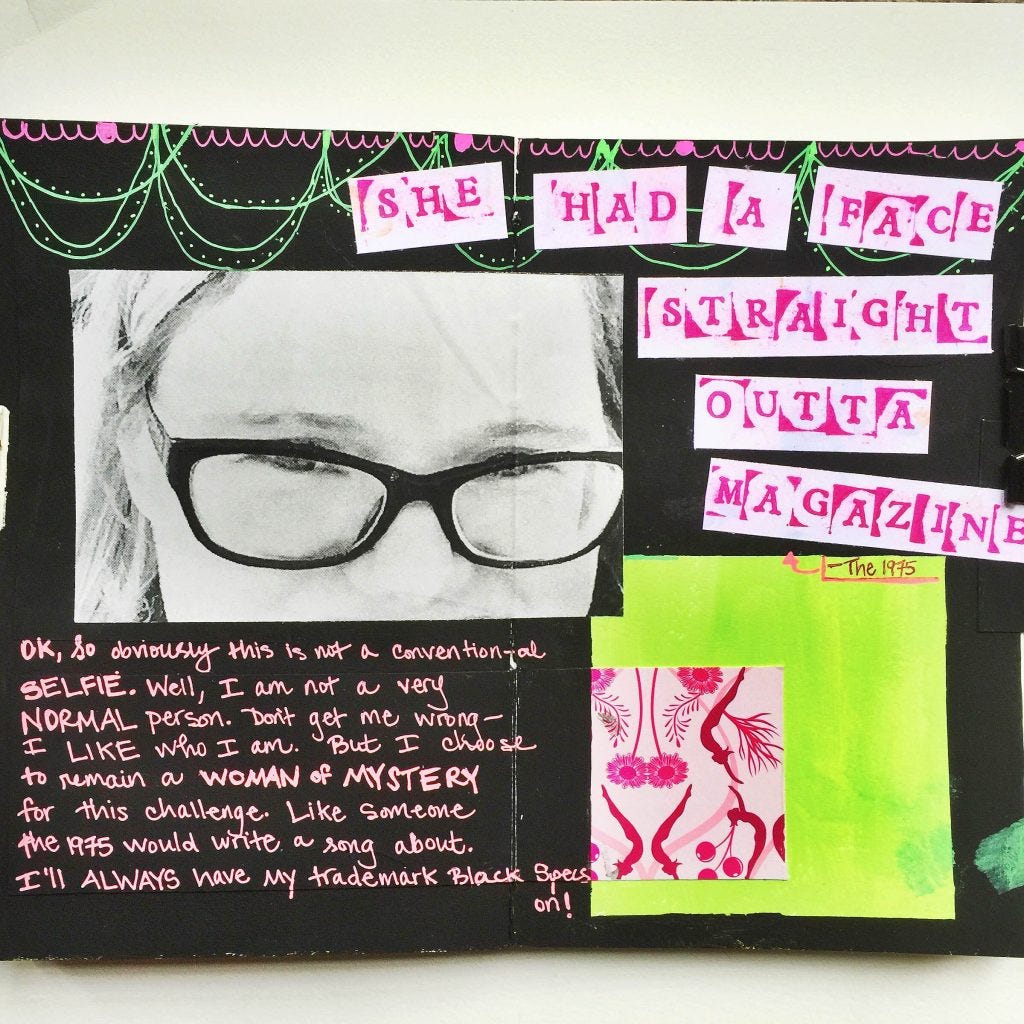 SHE HAD A FACE
STRAIGHT
OUTTA
MAGAZINE
- The 1975
OK, So obviously this is not a convention-al
SELFIE. Well, I am not a very
NORMAL person. Don't get me wrong-
I LIKE who I am. But I choose
to remain a WOMAN of MYSTERY
for this challenge. Like Someone
the 1975 would write a song about.
I'll ALWAYS have my trademark Black Specs
on!